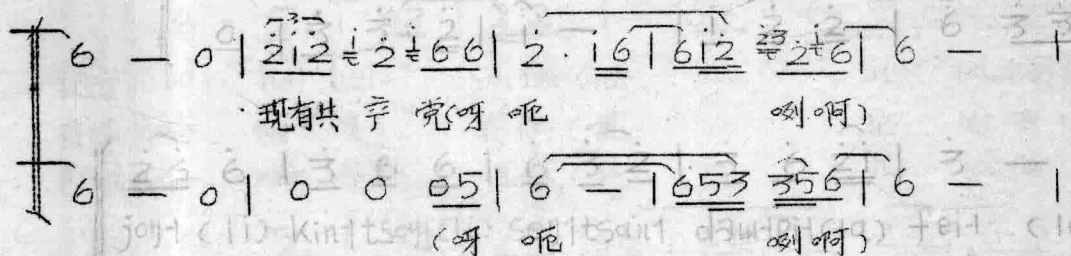 6 — 0 | 2̇1̇2̇ 1̇ 2̇ 1̇ 6 6 | 2̇ · 1̇ 6 | 6 1̇ 2̇ 2̇3̇ 2̇ 1̇ 6 | 6 — |
现有共 产 党(呀 呃 咧 啊)
6 — 0 | 0 0 0 5 | 6 — | 6 5 3 3 5 6 | 6 — |
(呀 呃 咧 啊)